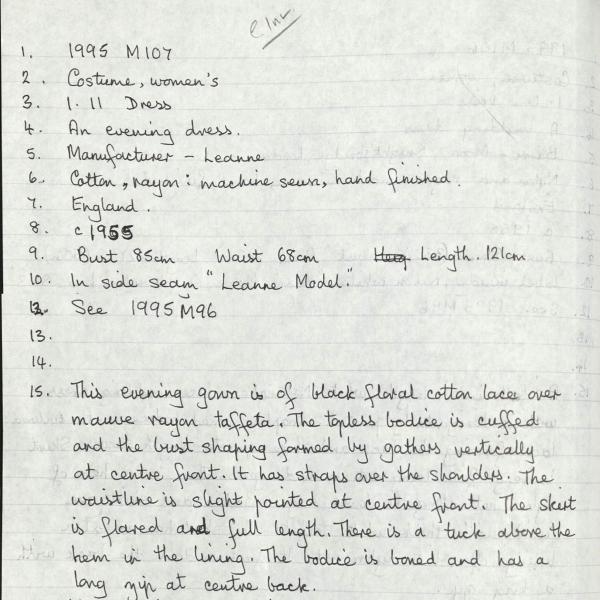 elnr
1. 1995 M107
2. Costume, women's
3. 1.11 Dress
4. An evening dress.
5. Manufacturer - Leanne
6. Cotton, rayon: machine sewn, hand finished.
7. England.
8. c 1955
9. Bust 85cm Waist 68cm Length. 121cm
10. In side seam "Leanne Model."
12. See 1995 M96
13.
14.
15. This evening gown is of black floral cotton lace over
mauve rayon taffeta. The topless bodice is cuffed
and the bust shaping formed by gathers vertically
at centre front. It has straps over the shoulders. The
waistline is slight pointed at centre front. The skirt
is flared and full length. There is a tuck above the
hem in the lining. The bodice is boned and has a
long zip at centre back.